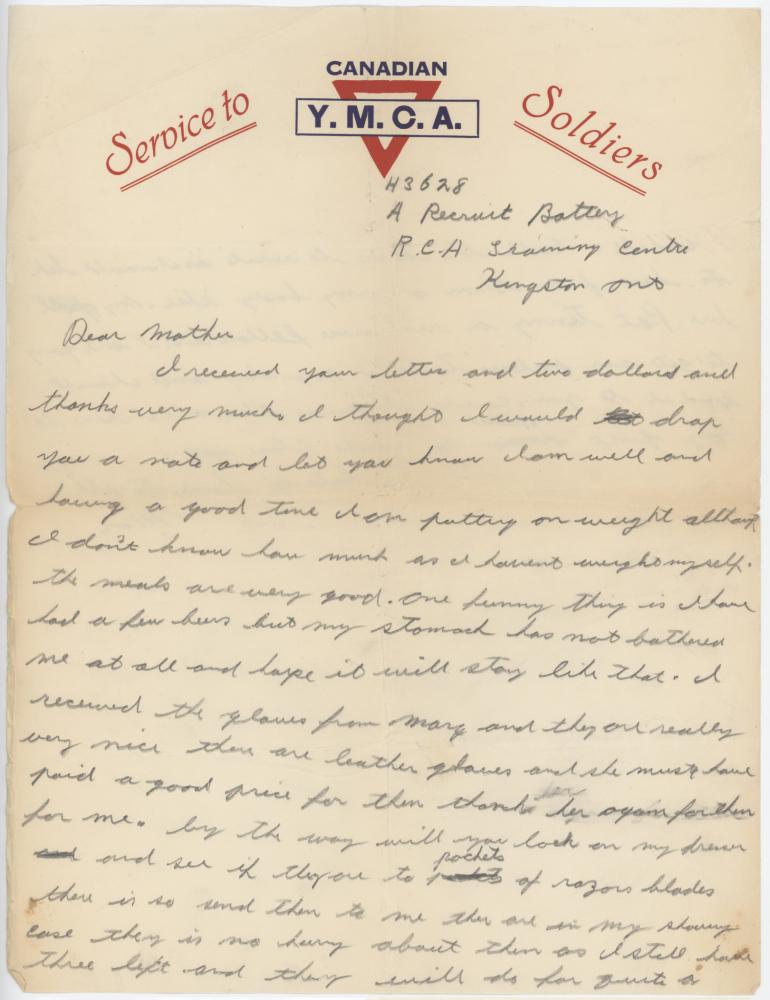 CANADIAN
Y.M.C.A.
Service to Soldiers
H3628
A Recruit Battery
R.C.A Training Centre
Kingston Ont
Dear Mother
I received your letter and two dollars and
thanks very much. I thought I would drop
you a note and let you know I am well and
having a good time I am putting on weight although
I don't know how much as I havent weight myself.
the meals are very good. One funny thing is I have
had a few beers but my stomach has not bothered
me at all and hope it will stay like that. I
received the gloves from Marg and they are really
very nice there are leather gloves and she must have
paid a good price for them thank her again for them
for me. by the way will you look on my dresser
and see if they are to pockets of razors blades
there is so send them to me ther are in my shaving
case they is no hurry about them as I still have
three left and they will do for quite a